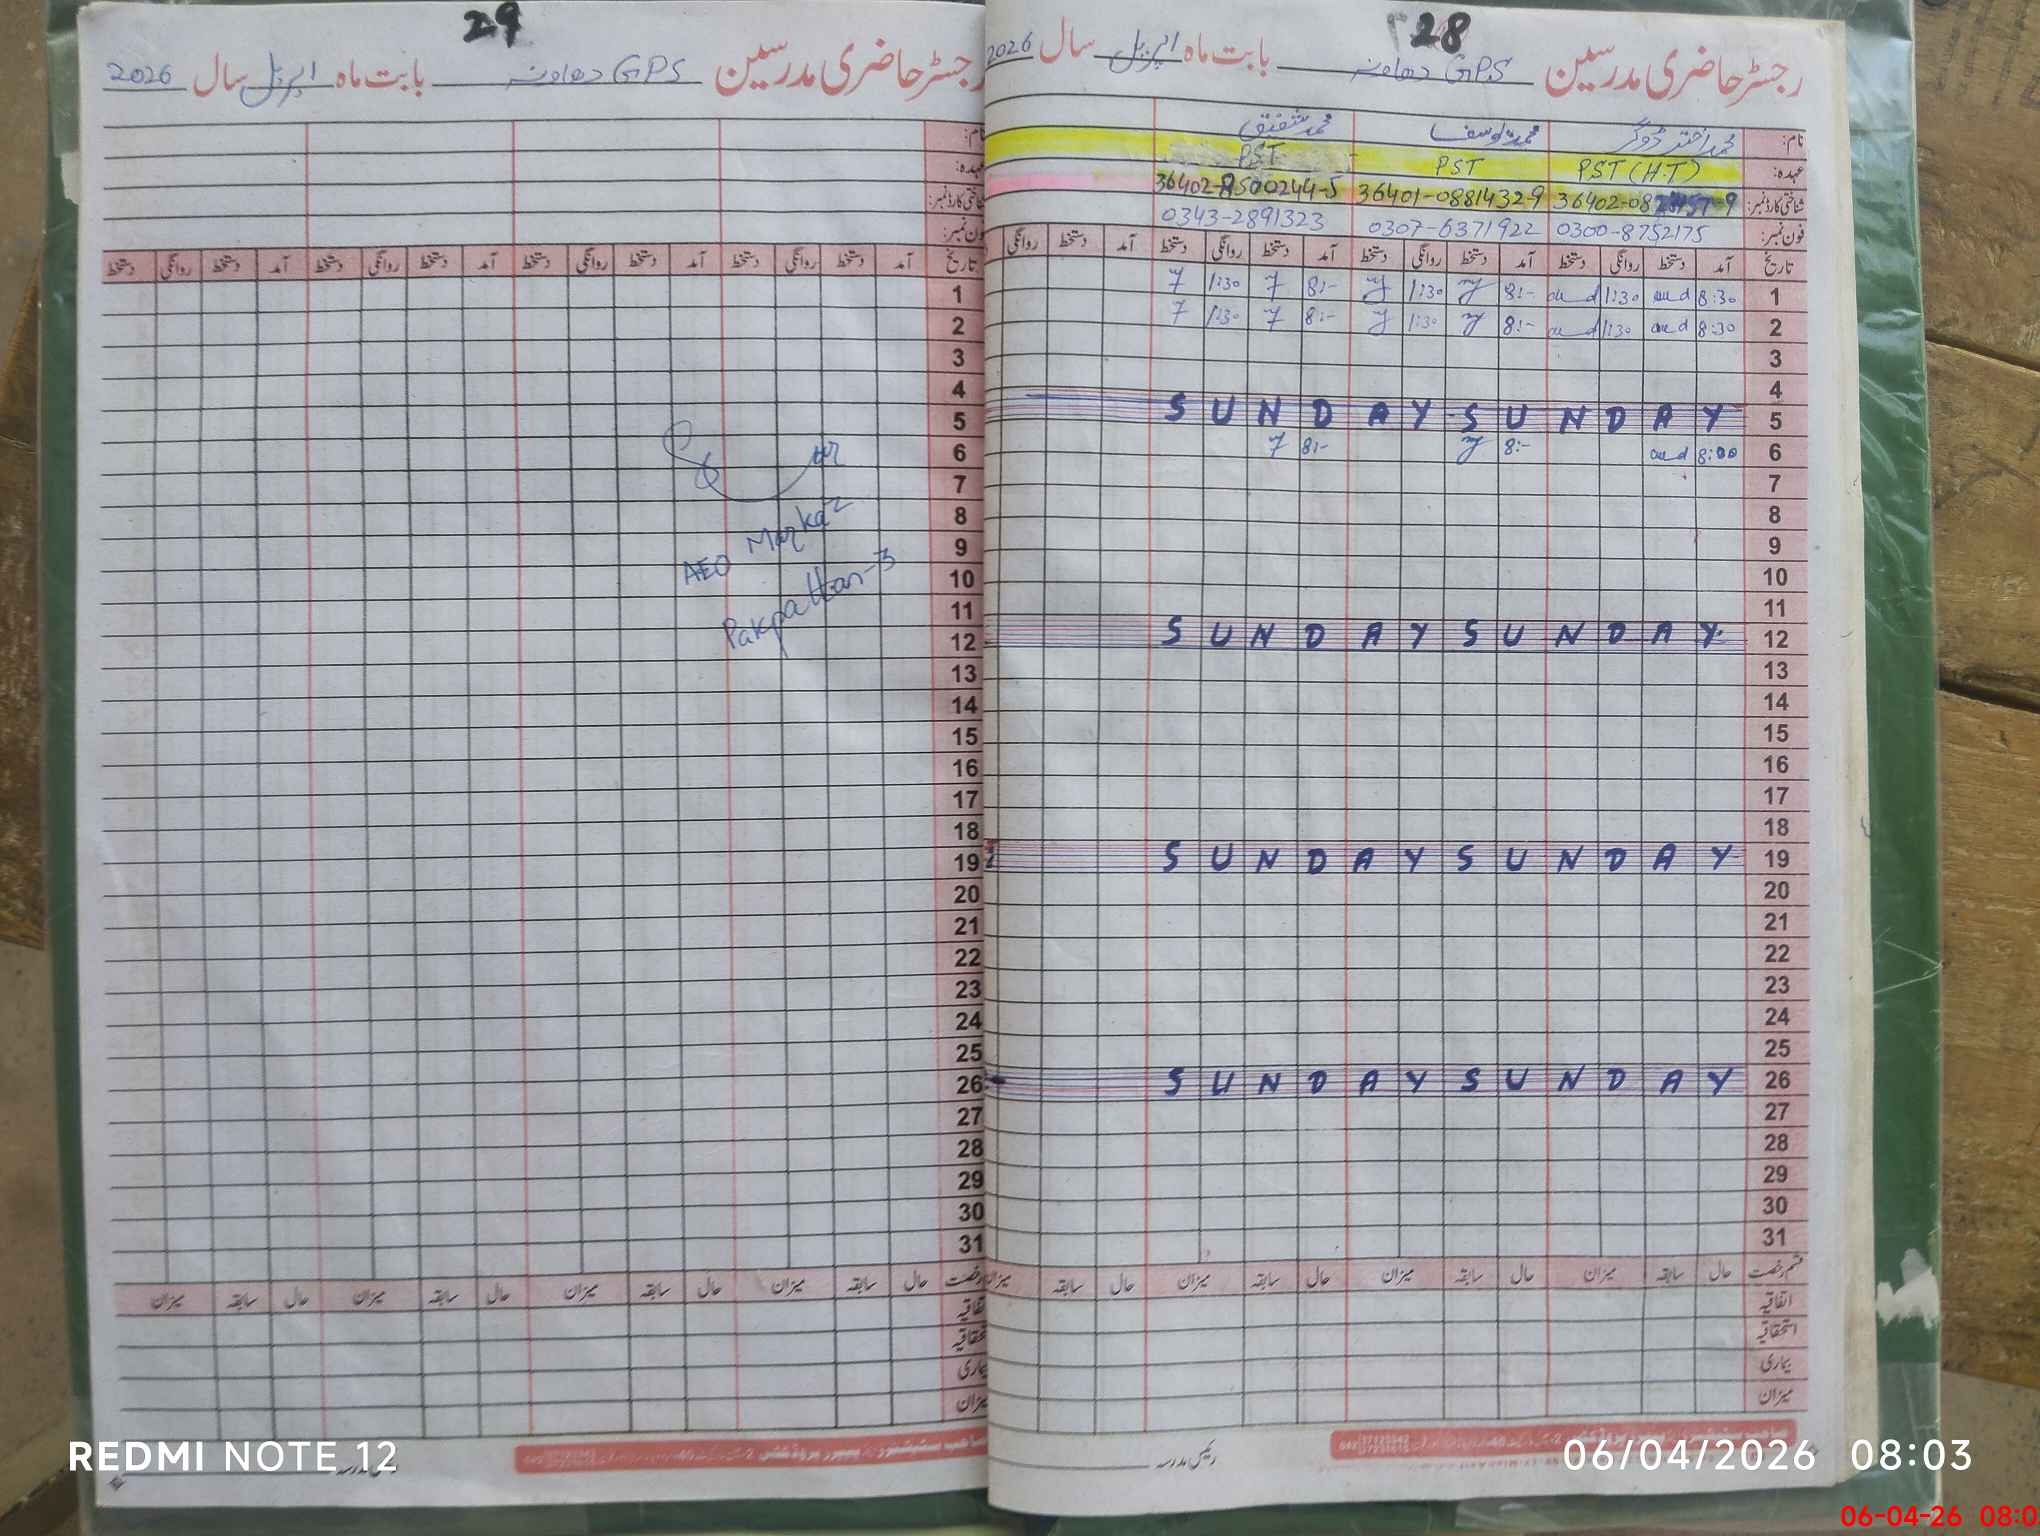 28
رجسٹر حاضری مدرسین GPS دھاونہ بابت ماہ اپریل سال 2026
نام: محمد اختر ڈوگر محمد یوسف محمد شفیق
عہدہ: PST (H.T) PST PST
شناختی کارڈ نمبر: 36401-0881432-9 36402-8500244-5
فون نمبر: 0300-8752175 0307-6371922 0343-2891323
تاریخ آمد دستخط روانگی دستخط آمد دستخط روانگی دستخط آمد دستخط روانگی دستخط آمد دستخط روانگی
1 8:30 1:30 8:- 1:30 8:- 1:30
2 8:30 1:30 8:- 1:30 8:- 1:30
3
4
5 SUNDAY SUNDAY
6 8:00 8:- 8:-
7
8
9
10
11
12 SUNDAY SUNDAY
13
14
15
16
17
18
19 SUNDAY SUNDAY
20
21
22
23
24
25
26 SUNDAY SUNDAY
27
28
29
30
31
قسم رخصت حال سابقہ میزان حال سابقہ میزان حال سابقہ میزان حال سابقہ میزان
اتفاقیہ
استحقاقیہ
بیماری
میزان
رئیس مدرسہ
29
رجسٹر حاضری مدرسین GPS دھاونہ بابت ماہ اپریل سال 2026
نام:
عہدہ:
شناختی کارڈ نمبر:
فون نمبر:
تاریخ آمد دستخط روانگی دستخط آمد دستخط روانگی دستخط آمد دستخط روانگی دستخط آمد دستخط روانگی دستخط
1
2
3
4
5
6
7
8
9
10
11
12
13
14
15
16
17
18
19
20
21
22
23
24
25
26
27
28
29
30
31
AEO Markaz
Pakpattan-3
رخصت حال سابقہ میزان حال سابقہ میزان حال سابقہ میزان حال سابقہ میزان
اتفاقیہ
استحقاقیہ
بیماری
میزان
رئیس مدرسہ
REDMI NOTE 12
06/04/2026 08:03
06-04-26 08:0